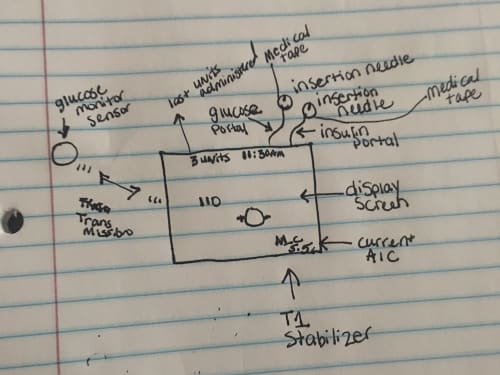 last units
administered
Medical
tape
insertion needle
glucose
portal
insertion
needle
medical
tape
insulin
portal
glucose
monitor
sensor
Trans
Missio
3 units 11:30AM
110
display
screen
5.5
current
A1C
T1
Stabilizer